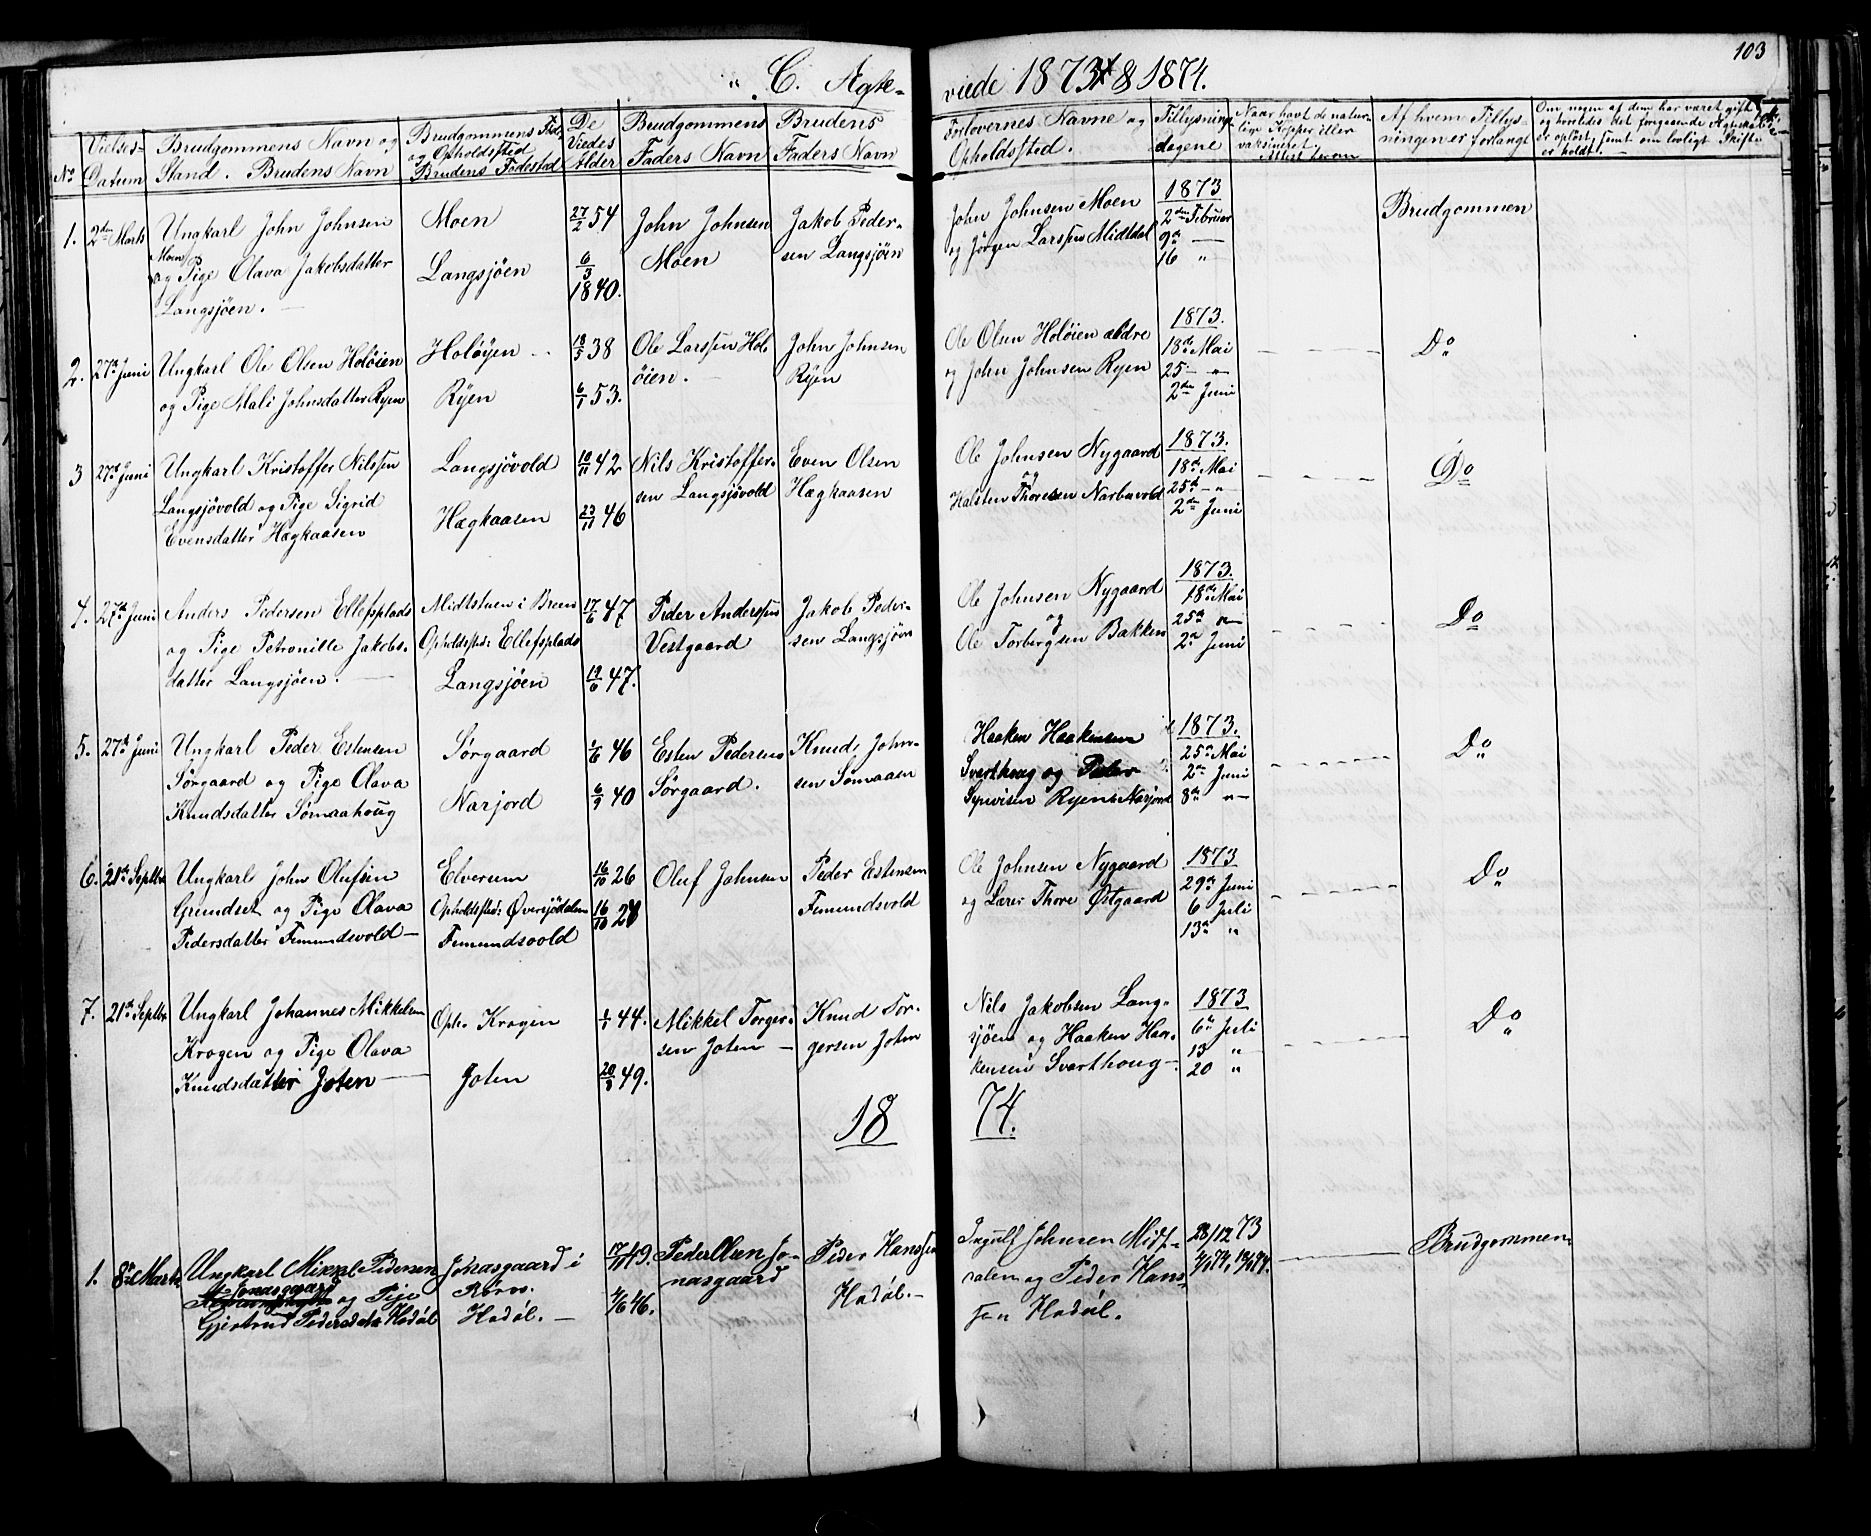 103
C. Ægte-
viede 1873 & 1874.
No
Vielses-
Datum
Brudgommens Navn og
Stand. Brudens Navn
Brudgommens Føde
og Opholdssted
Brudens Fødestad
De
Viedes
Alder
Brudgommens
Faders Navn
Brudens
Faders Navn
Forlovernes Navne og
Opholdssted.
Tillysnings-
dagene
Naar havt de natur-
lige Kopper eller
vaksineret.
Attest herom
Af hvem Tillys-
ningen er forlangt
Om nogen af dem har været gift
og hvorledes det foregaaende Ægteskab
er opløst, samt om lovligt Skifte
er holdt.
1. 2den Marts
Ungkarl John Johnsen
Moen
og Pige Olava Jakobsdatter
Langsjöen.
Moen
Langsjöen
27/2 54
6/3
1840.
John Johnsen
Moen
Jakob Peder-
sen Langsjöen
John Johnsen Moen
og Jörgen Larssen Midtdal
1873
2den Februar
9de
16 "
Brudgommen
2. 27de Juni
Ungkarl Ole Olsen Holöien
og Pige Mali Johnsdatter Ryen
Holøyen
Rÿen
18/5 38
6/1 53.
Ole Larssen Hol-
öien.
John Johnsen
Rÿen
Ole Olsen Holöien ældre
og John Johnsen Ryen
1873.
18de Mai
25 - "
2den Juni
Do
3 27de Juni
Ungkarl Kristoffer Nilssen
Langsjövold og Pige Sigrid
Evensdatter Hægkaasen
Langsjövold
Hægkaasen
10/11 42
23/11 46
Nils Kristoffer-
sen Langsjövold
Even Olsen
Hægkaasen
Ole Johnsen Nygaard
og
Halsten Thoresen Narbuvold
1873.
18de Mai
25de - "
2de Juni
Do
4. 27de Juni
Anders Pedersen Ellefsplads
og Pige Petronille Jakobs-
datter Langsjöen.
Midtstuen i Breen
Opholdssted: Ellefsplads
Langsjöen
17/6 47
19/6 47.
Peder Anderssen
Vestgaard
Jakob Peder-
sen Langsjöen
Ole Johnsen Nygaard
og
Ole Torbergsen Bakken
1873.
18de Mai
25de "
2de Juni
Do
5. 27de Juni
Ungkarl Peder Estensen
Sörgaard og Pige Olava
Knudsdatter Sömaahoug
Sörgaard
Narjord
1/6 46
6/9 40
Esten Pedersen
Sörgaard.
Knud John-
sen Sömaaen
Haaken Haakensen
Svarthoug og Peder
Synvisen Ryen Narjord
1873.
25de Mai
2de Juni
8de "
Do
6. 21de Septbr
Ungkarl John Olufsen
Grundset og Pige Olava
Pedersdatter Femundsvold
Elverum
Opholdssted: Øversjödalen
Femundsvold
16/10 26
16/10
Oluf Johnsen
Peder Estensen
Femundsvold
Ole Johnsen Nygaard
og Lærer Thore Østgaard
1873
29de Juni
6 Juli
13de "
Do
7. 21de Septbr
Ungkarl Johannes Mikkelsen
Krogen og Pige Olava
Knudsdatter Joten
Oph. Krogen
Joten
1/1 44.
20/8 49.
Mikkel Torger-
sen Joten
Knud Tor-
gersen Joten
Nils Jakobsen Lang-
sjöen og Haaken Haa-
kensen Svarthoug
1873
6te Juli
13 "
20 "
Do
1874.
1. 8de Marts
Ungkarl Mikkel Pedersen
Jonasgaard
og Pige
Gjertrud Pedersdatr Hådöl
Jonasgaard i
Röros.
Hadöl.
17/11 49.
46.
Peder Olsen Jo-
nasgaard
Peder Hanssen
Hadöl.
Ingulf Johnsen Midt-
dalen og Peder Hans-
sen Hadöl.
28/12 73
4/1 74,
Brudgommen